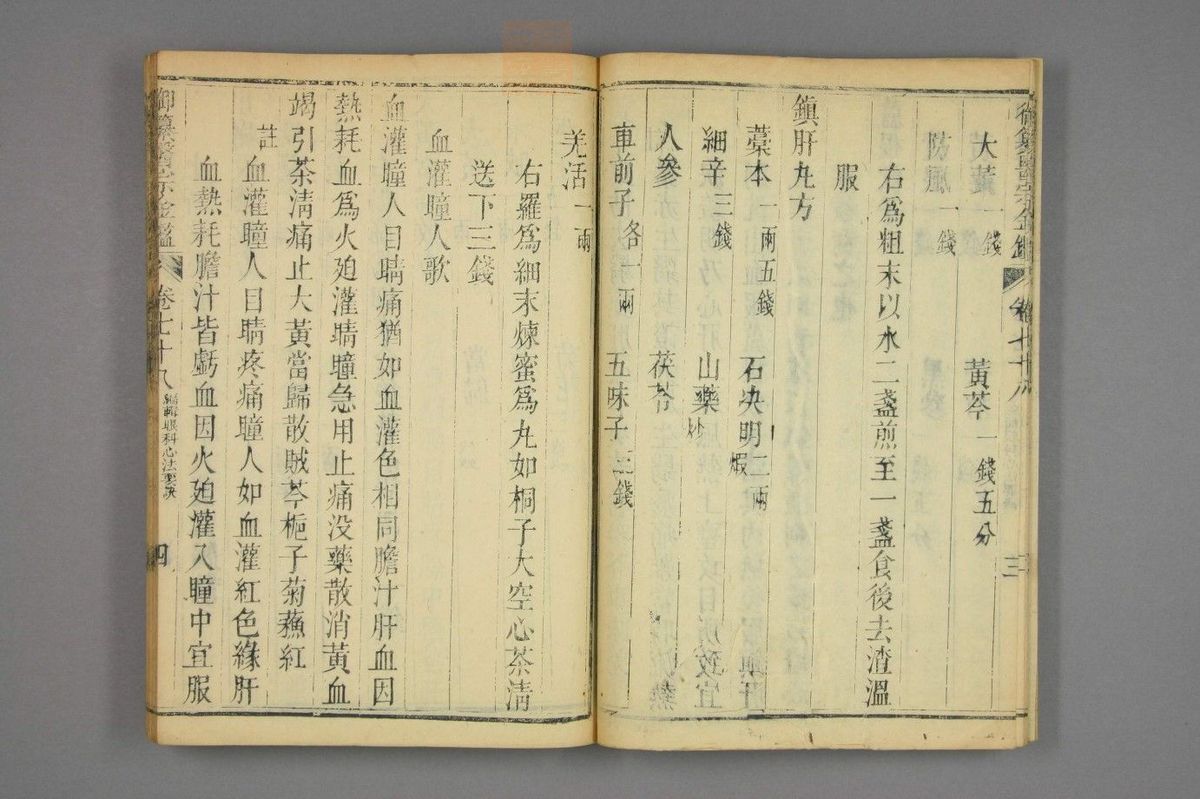 大黃一錢　黃芩一錢五分
防風一錢
右爲粗末以水二盞煎至一盞食後去渣溫
服
鎮肝丸方
藁本一兩五錢　石决明二兩煅
細辛三錢　山藥炒
人參　茯苓
車前子各一兩　五味子三錢
羌活一兩
右羅爲細末煉蜜爲丸如桐子大空心茶淸
送下三錢
血灌瞳人歌
血灌瞳人目睛痛猶如血灌色相同膽汁肝血因
熱耗血爲火廹灌睛瞳急用止痛没藥散消黃血
竭引茶淸痛止大黃當歸散賊芩梔子菊蘓紅
註血灌瞳人目睛疼痛瞳人如血灌紅色緣肝
血熱耗膽汁皆虧血因火廹灌入瞳中宜服
御纂醫宗金鑑　卷七十八　編輯眼科心法要訣　四